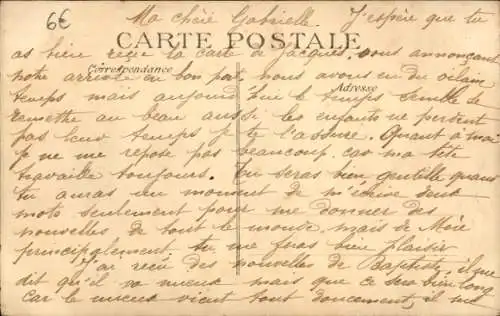 6€
Ma chère Gabrielle. J'espère que tu
CARTE POSTALE
as bien reçu la carte de Jacques, vous annonçant
Correspondance
notre arrivée en bon port, nous avons eu du vilain
Adresse
temps mais aujourd'hui le temps semble se
remettre au beau aussi les enfants ne perdent
pas leur temps je te l'assure. Quant à moi
je ne me repose pas beaucoup car ma tête
travaille toujours. Tu seras bien gentille quand
tu auras un moment de m'écrire deux
mots seulement pour me donner des
nouvelles de tout le monde. mais de Mère
principalement. tu me feras bien plaisir
J'ai reçu des nouvelles de Baptiste, il me
dit qu'il va mieux mais que ce sera bien long
car le mieux vient tout doucement, il me